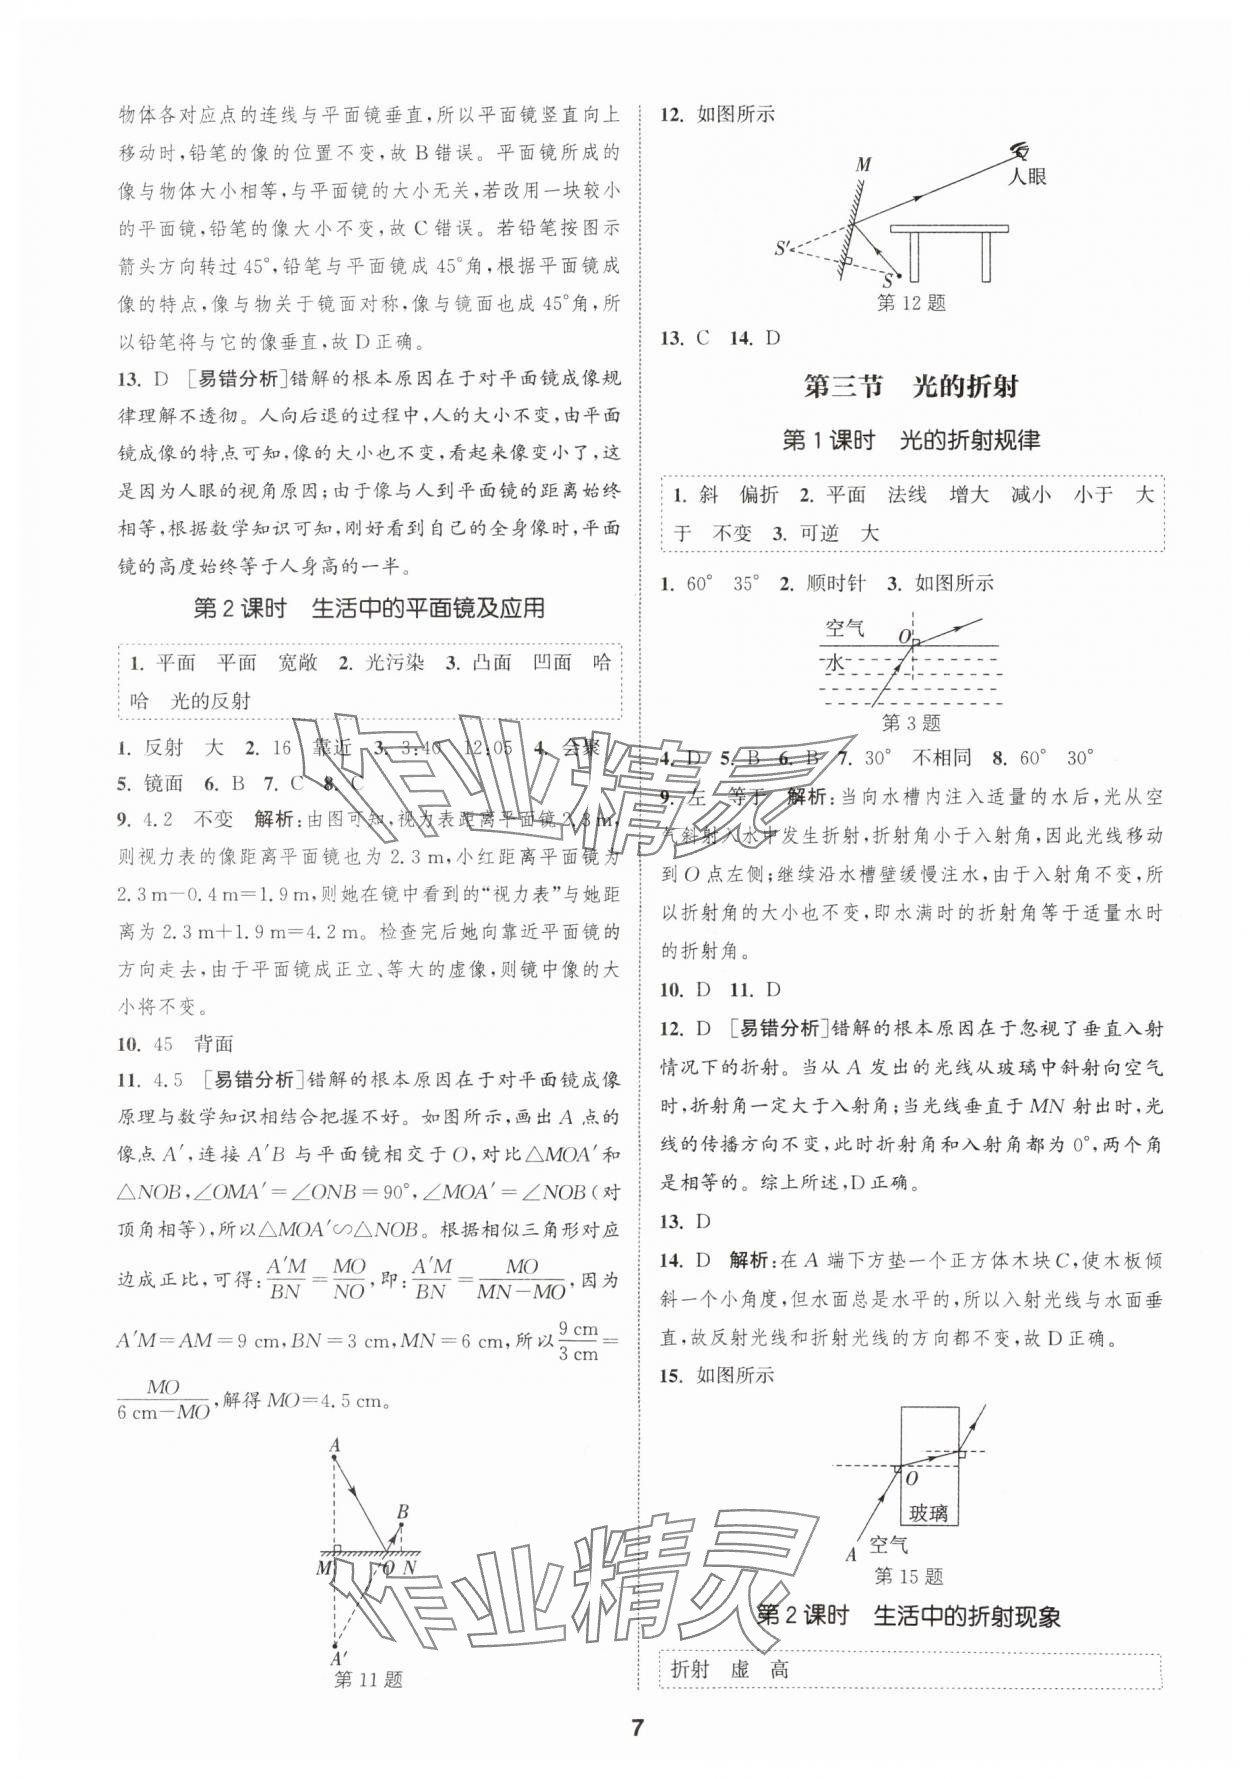 物体各对应点的连线与平面镜垂直,所以平面镜竖直向上
移动时,铅笔的像的位置不变,故B错误。平面镜所成的
像与物体大小相等,与平面镜的大小无关,若改用一块较小
的平面镜,铅笔的像大小不变,故C错误。若铅笔按图示
箭头方向转过45°,铅笔与平面镜成45°角,根据平面镜成
像的特点,像与物关于镜面对称,像与镜面也成45°角,所
以铅笔将与它的像垂直,故D正确。
13. D [易错分析]错解的根本原因在于对平面镜成像规
律理解不透彻。人向后退的过程中,人的大小不变,由平面
镜成像的特点可知,像的大小也不变,看起来像变小了,这
是因为人眼的视角原因;由于像与人到平面镜的距离始终
相等,根据数学知识可知,刚好看到自己的全身像时,平面
镜的高度始终等于人身高的一半。
第2课时 生活中的平面镜及应用
1. 平面 平面 宽敞 2. 光污染 3. 凸面 凹面 哈
哈 光的反射
1. 反射 大 2. 16 靠近 3. 3:40 12:05 4. 会聚
5. 镜面 6. B 7. C 8. C
9. 4.2 不变 解析:由图可知,视力表距离平面镜2.3 m,
则视力表的像距离平面镜也为2.3 m,小红距离平面镜为
2.3 m-0.4 m=1.9 m,则她在镜中看到的“视力表”与她距
离为2.3 m+1.9 m=4.2 m。检查完后她向靠近平面镜的
方向走去,由于平面镜成正立、等大的虚像,则镜中像的大
小将不变。
10. 45 背面
11. 4.5 [易错分析]错解的根本原因在于对平面镜成像
原理与数学知识相结合把握不好。如图所示,画出A点的
像点A′,连接A′B与平面镜相交于O,对比△MOA′和
△NOB,∠OMA′=∠ONB=90°,∠MOA′=∠NOB(对
顶角相等),所以△MOA′∽△NOB。根据相似三角形对应
边成正比,可得:A′M/BN=MO/NO,即:A′M/BN=MO/(MN-MO),因为
A′M=AM=9 cm,BN=3 cm,MN=6 cm,所以9 cm/3 cm=
MO/(6 cm-MO),解得MO=4.5 cm。
A
B
M O N
A′
第11题
12. 如图所示
M
人眼
S′
S
第12题
13. C 14. D
第三节 光的折射
第1课时 光的折射规律
1. 斜 偏折 2. 平面 法线 增大 减小 小于 大
于 不变 3. 可逆 大
1. 60° 35° 2. 顺时针 3. 如图所示
空气 O
水
第3题
4. D 5. B 6. B 7. 30° 不相同 8. 60° 30°
9. 左 等于 解析:当向水槽内注入适量的水后,光从空
气斜射入水中发生折射,折射角小于入射角,因此光线移动
到O点左侧;继续沿水槽壁缓慢注水,由于入射角不变,所
以折射角的大小也不变,即水满时的折射角等于适量水时
的折射角。
10. D 11. D
12. D [易错分析]错解的根本原因在于忽视了垂直入射
情况下的折射。当从A发出的光线从玻璃中斜射向空气
时,折射角一定大于入射角;当光线垂直于MN射出时,光
线的传播方向不变,此时折射角和入射角都为0°,两个角
是相等的。综上所述,D正确。
13. D
14. D 解析:在A端下方垫一个正方体木块C,使木板倾
斜一个小角度,但水面总是水平的,所以入射光线与水面垂
直,故反射光线和折射光线的方向都不变,故D正确。
15. 如图所示
O
玻璃
A 空气
第15题
第2课时 生活中的折射现象
折射 虚 高
7
作业精灵
作业精灵